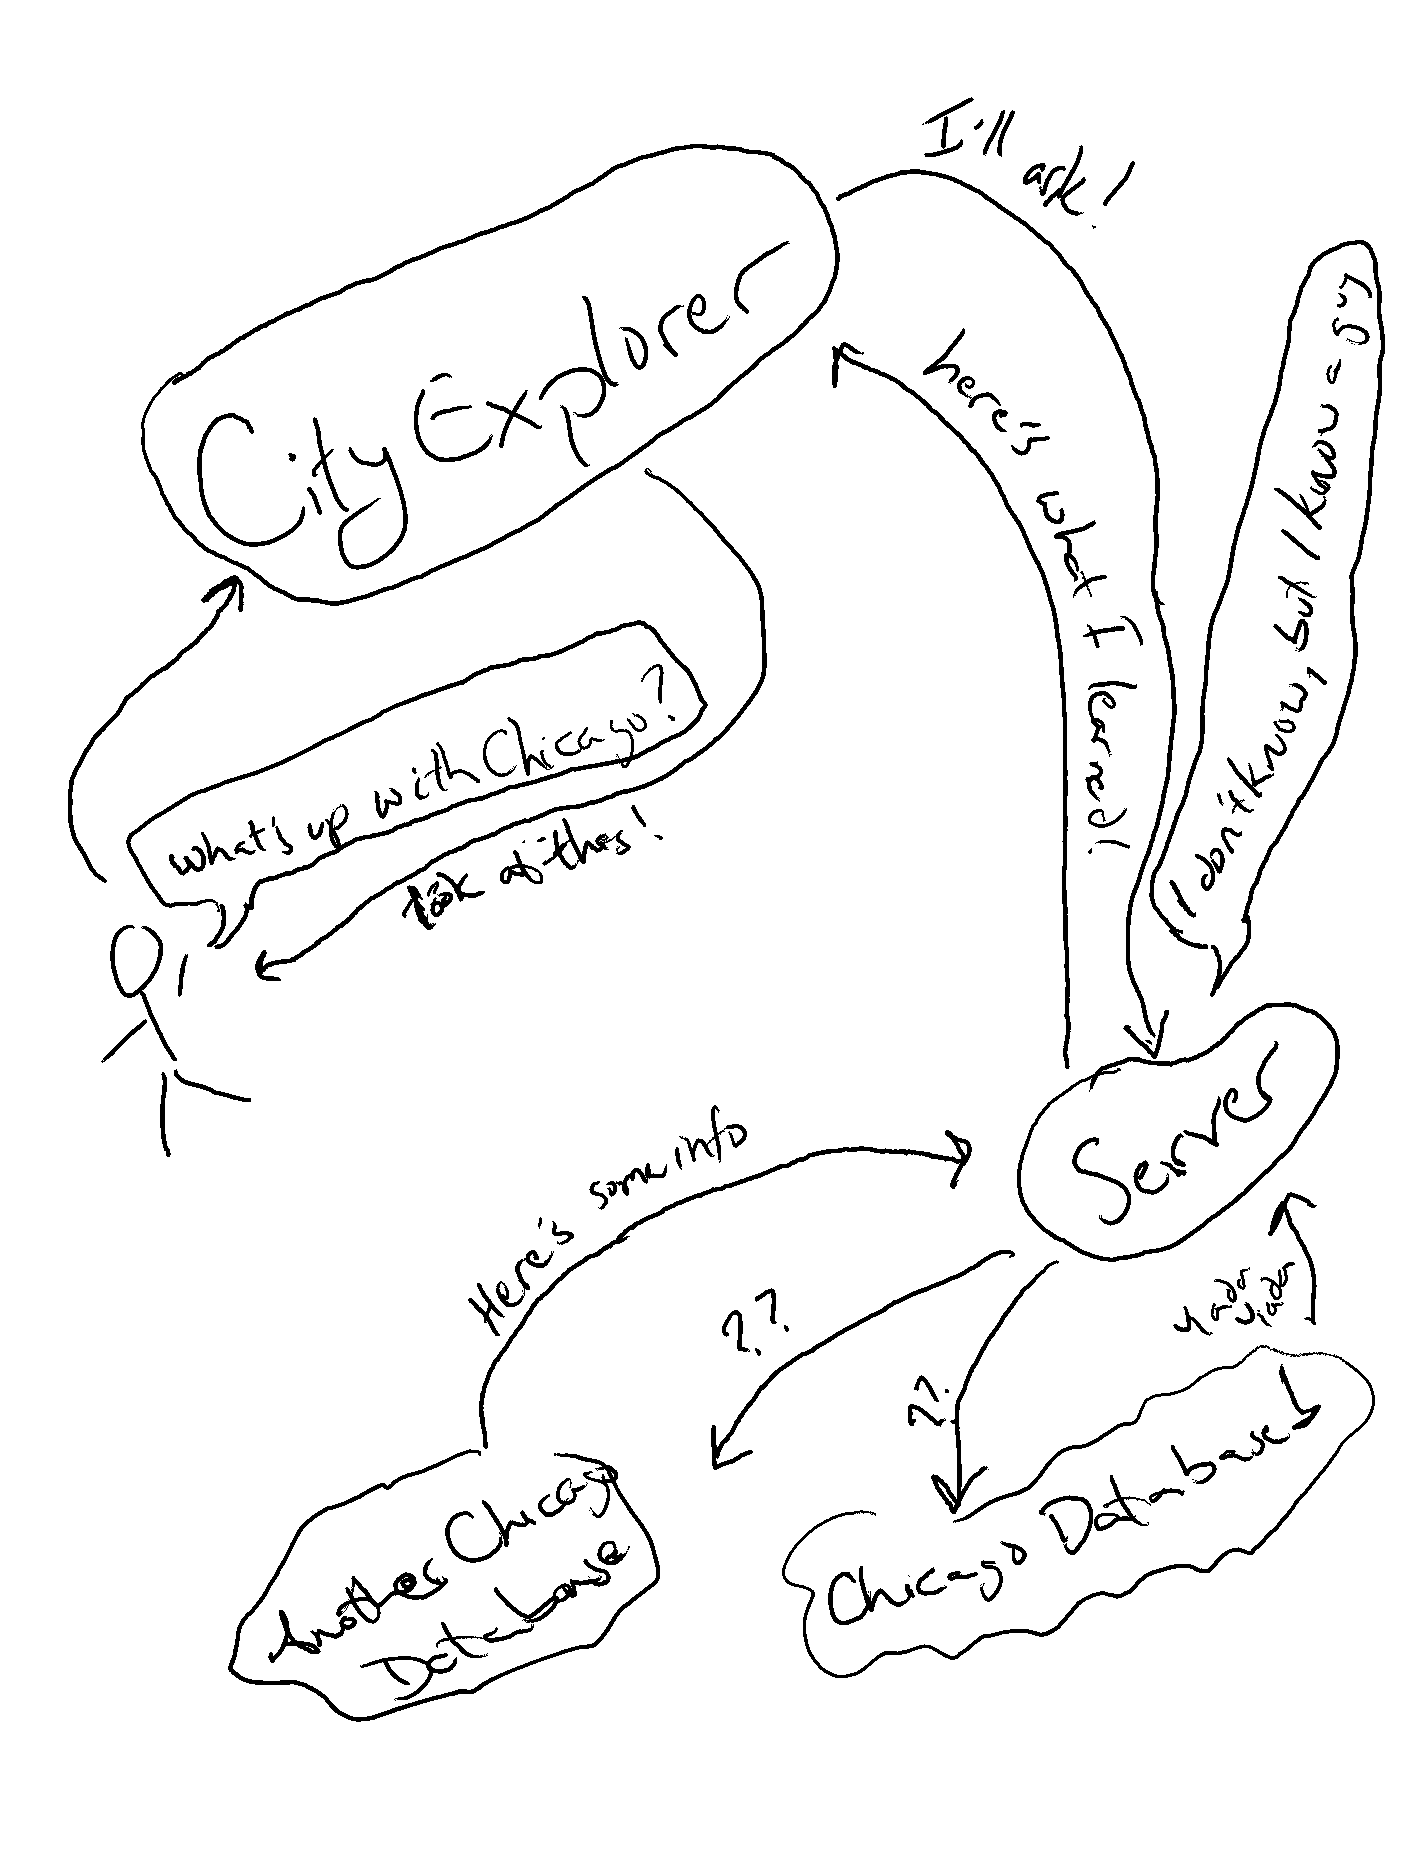 I'll
ask!
City Explorer
here's what I learned!
I don't know, but I know a guy
what's up with Chicago?
look at this!
Server
Here's some info
??
??
yada
yada
Another Chicago
Database
Chicago Database1